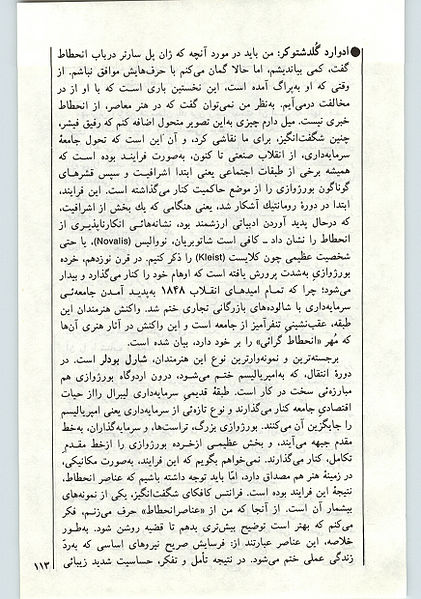 ●ادوارد گُلدشتوکر: من باید در مورد آنچه که ژان پل سارتر درباب انحطاط
گفت، کمی بیاندیشم، اما حالا گمان می‌کنم با حرف‌هایش موافق نباشم. از
وقتی که او به‌پراگ آمده است، این نخستین باری است که با او از در
مخالفت درمی‌آیم. به‌نظر من نمی‌توان گفت که در هنر معاصر، از انحطاط
خبری نیست. میل دارم چیزی به‌این تصویر متحول اضافه کنم که رفیق فیشر،
چنین شگفت‌انگیز، برای ما نقاشی کرد، و آن این است که تحول جامعهٔ
سرمایه‌داری، از انقلاب صنعتی تا کنون، به‌صورت فرایند بوده است که
همیشه برخی از طبقات اجتماعی یعنی ابتدا اشرافیت و سپس قشرهای
گوناگون بورژوازی را از موضع حاکمیت کنار می‌گذاشته است. این فرایند،
ابتدا در دورهٔ رومانتیك آشکار شد، یعنی هنگامی که یك بخش از اشرافیت،
که درحال پدید آوردن ادبیاتی ارزشمند بود، نشانه‌هائی انکارناپذیری از
انحطاط را نشان داد ـ کافی است شاتوبریان، نووالیس (Novalis)، یا حتی
شخصیت عظیمی چون کلایست (Kleist) را ذکر کنیم. در قرن نوزدهم، خرده
بورژوازی به‌شدت پرورش یافته است که اوهام خود را کنار می‌گذارد و بیدار
می‌شود؛ چرا که تمام امیدهای انقلاب ۱۸۴۸ به‌پدید آمدن جامعه‌ئی
سرمایه‌داری با شالوده‌های بازرگانی تجاری ختم شد. واکنش هنرمندان این
طبقه، عقب‌نشینیِ تنفرآمیز از جامعه است و این واکنش در آثار هنری آن‌ها
که مُهر «انحطاط گرائی» را بر خود دارد، بیان شده است.
برجسته‌ترین و نمونه‌وارترین نوع این هنرمندان، شارل بودلر است. در
دورهٔ انتقال، که به‌امپریالیسم ختم می‌شود، درون اردوگاه بورژوازی هم
مبارزه‌ئی سخت در کار است. طبقهٔ قدیمیِ سرمایه‌داری لیبرال رااز حیات
اقتصادیِ جامعه کنار می‌گذارند و نوع تازه‌ئی از سرمایه‌داری یعنی امپریالیسم
را جایگزین آن می‌کنند. بورژوازی بزرگ، تراست‌ها، و سرمایه‌گذاران، به‌خط
مقدم جبهه می‌آیند، و بخش عظیمی ازخرده بورژوازی را ازخط مقدمِ
تکامل، کنار می‌گذارند. نمی‌خواهم بگویم که این فرایند، به‌صورت مکانیکی،
در زمینهٔ هنر هم مصداق دارد، امّا باید توجه داشته باشیم که عناصر انحطاط،
نتیجهٔ این فرایند بوده است. فرانتس کافکای شگفت‌انگیز، یکی از نمونه‌های
بیشمار آن است. از آنجا که من از «عناصرانحطاط» حرف می‌زنم، فکر
می‌کنم که بهتر است توضیح بیش‌تری بدهم تا قضیه روشن شود. به‌طور
خلاصه، این عناصر عبارتند از: فرسایش صریح نیروهای اساسی که به‌ردّ
زندگی عملی ختم می‌شود. در نتیجه تأمل و تفکر، حساسیت شدید زیبائی
۱۱۳